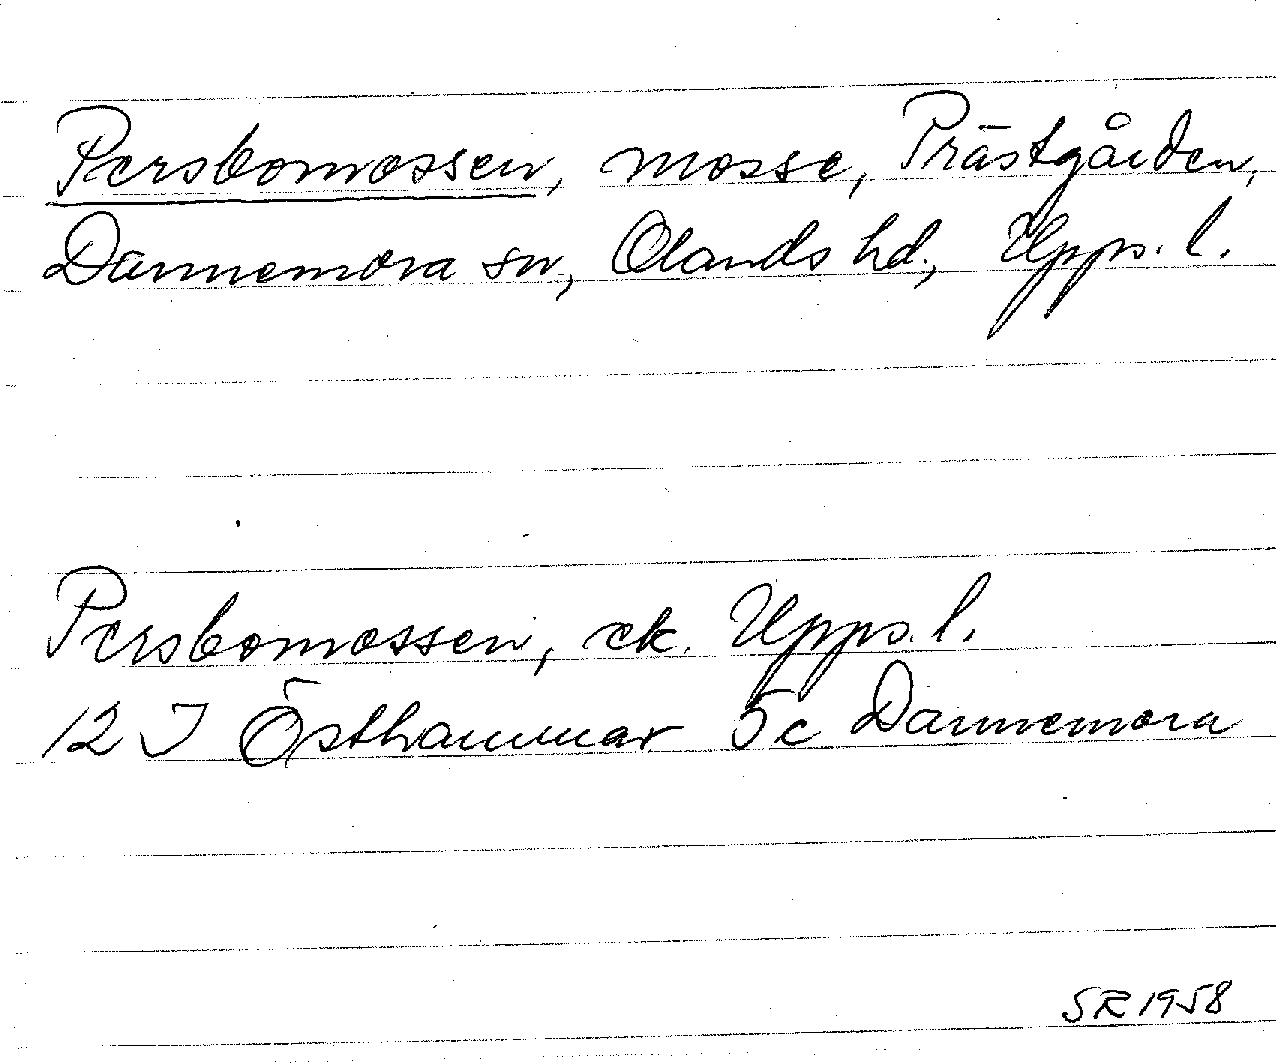 Persbomossen, mosse, Prästgården,
Dannemora sn, Olands hd, Upps. l.
Persbomossen, ek. Upps. l.
12 I Östhammar 5c Dannemora
SR 1958